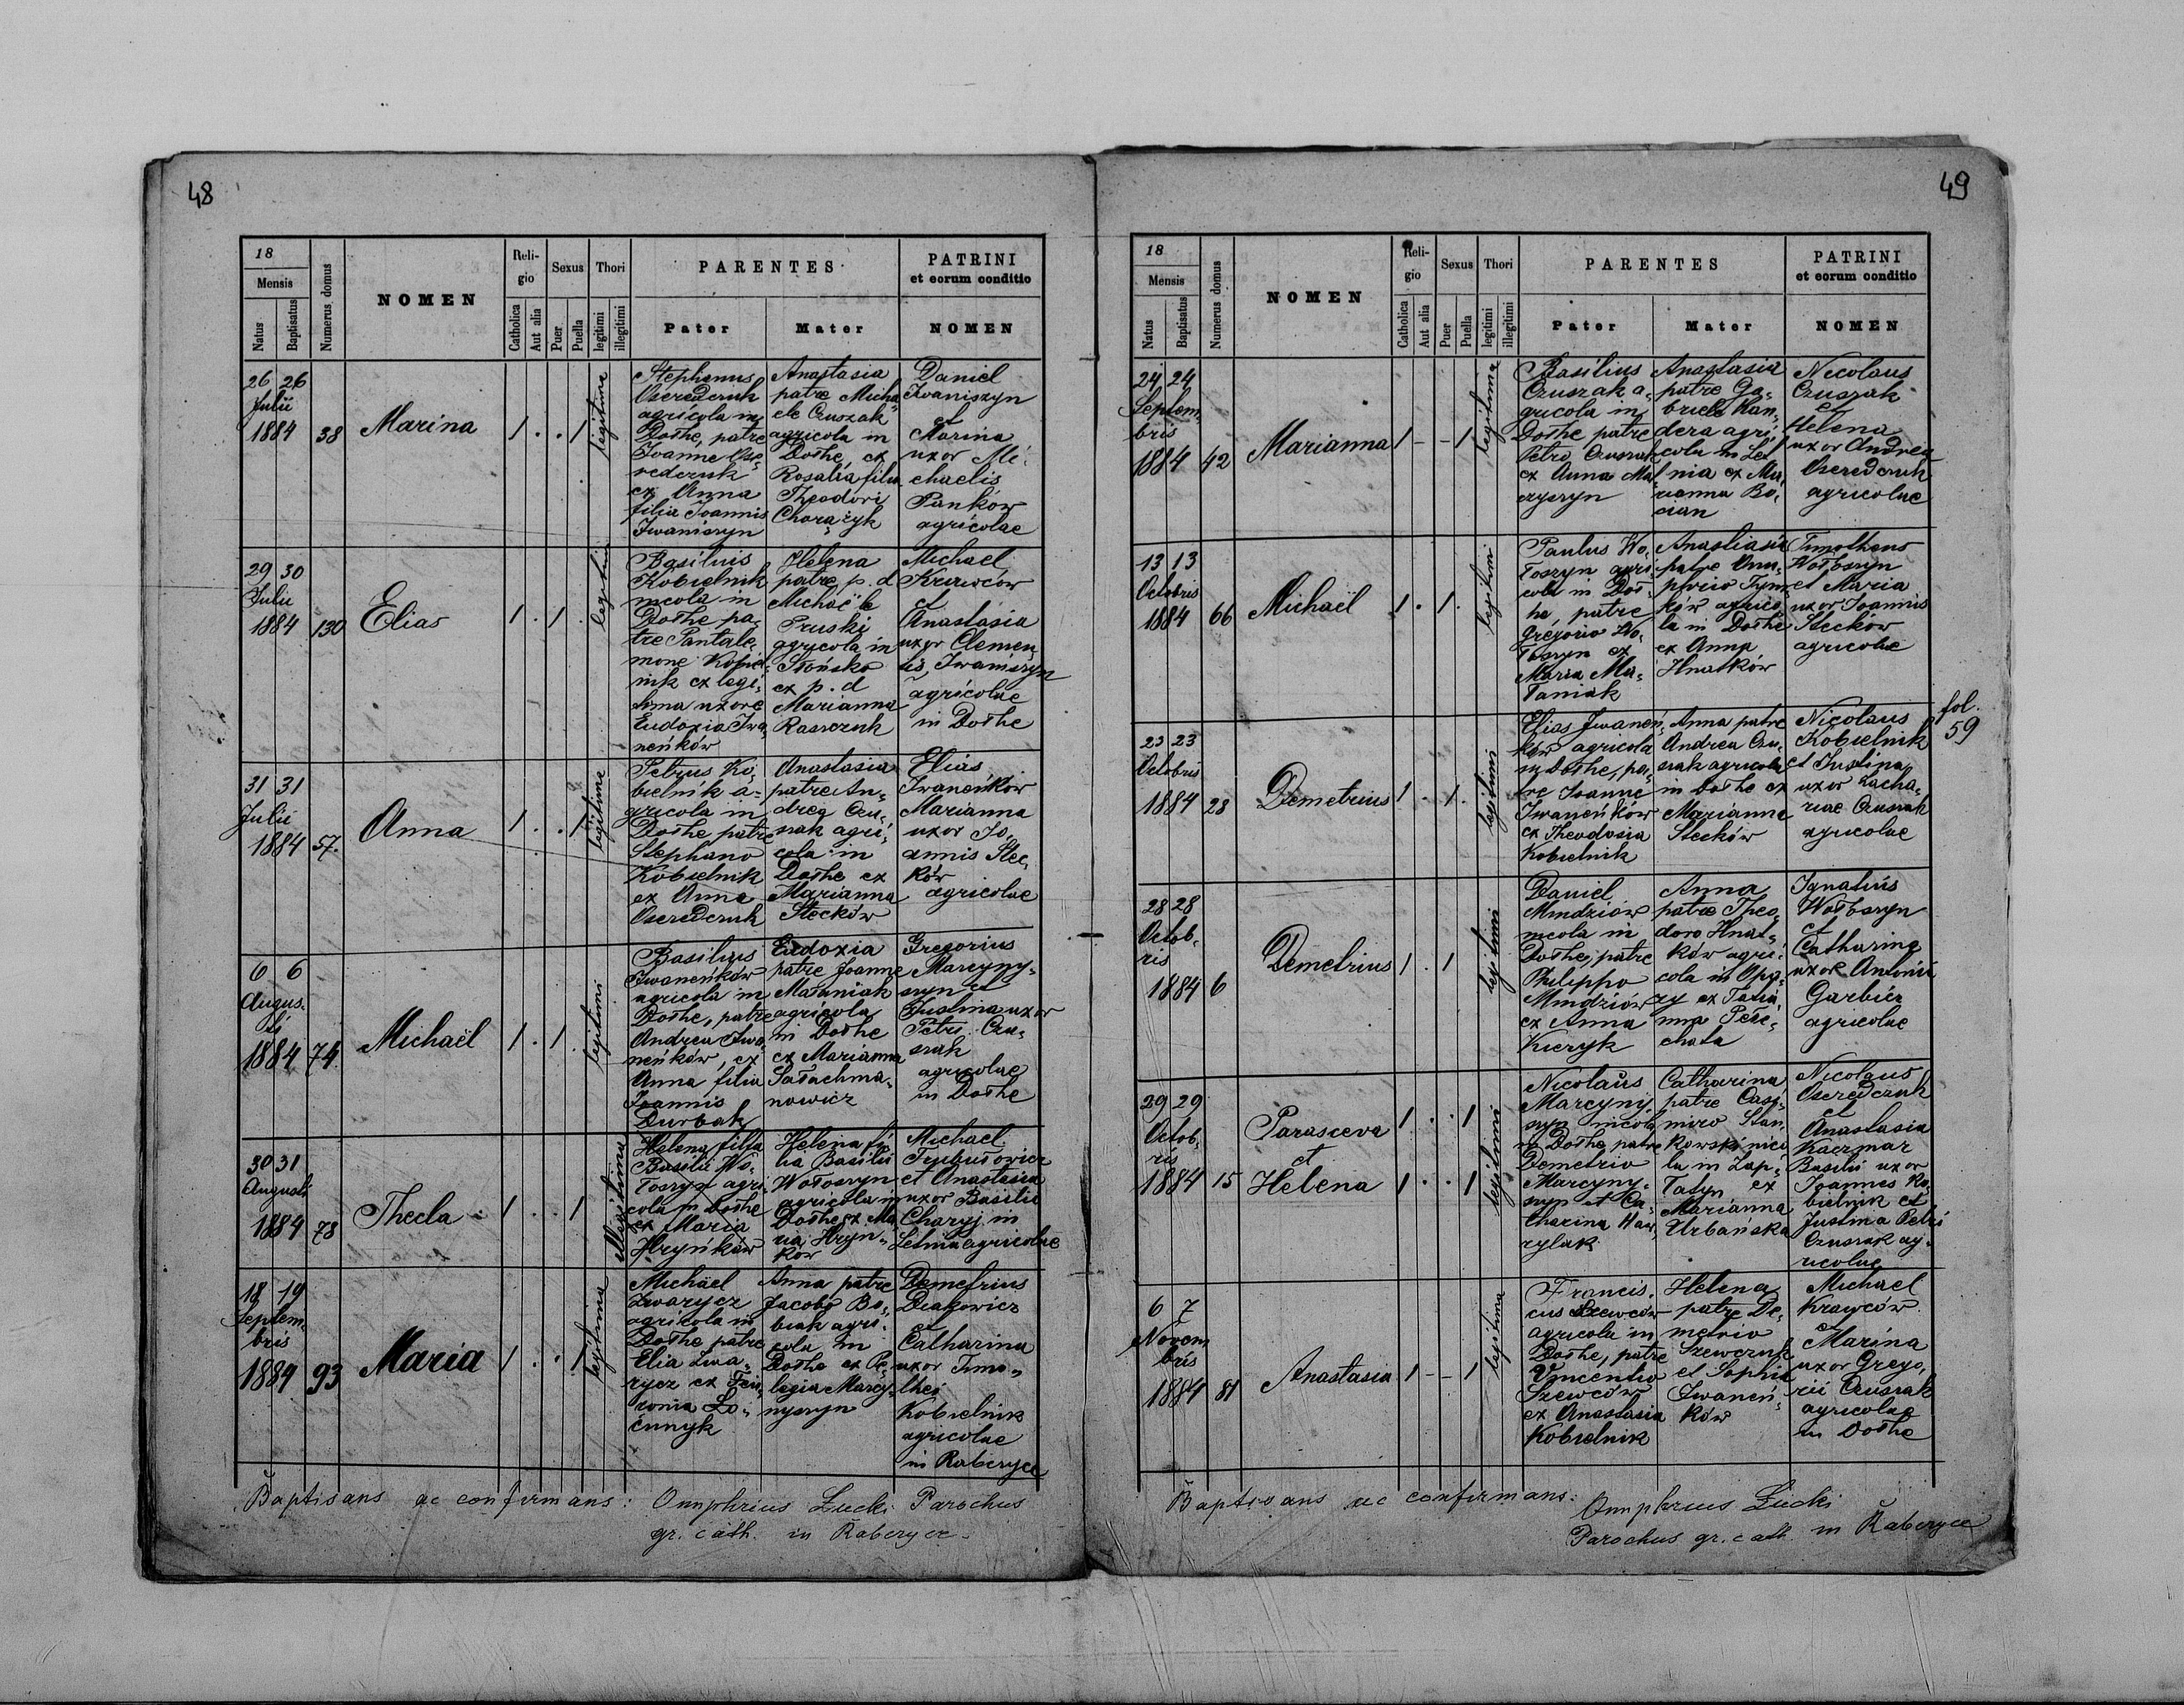 48
18
Mensis
Natus
Baptisatus
Numerus domus
NOMEN
Reli-
gio
Catholica
Aut alia
Sexus
Puer
Puella
Thori
legitimi
illegitimi
PARENTES
Pater
Mater
PATRINI
et eorum conditio
NOMEN
26 26
Julii
1884
38
Marina
1 . . 1
legitima
Stephanus
Oseredczuk
agricola in
Dołhe, patre
Joanne Ose-
redczuk
ex Anna
filia Joannis
Iwaniszyn
Anastasia
patre Micha-
ele Czuszak
agricola in
Dołhe, ex
Rosalia filia
Theodori
Charążyk
Daniel
Iwaniszyn
et
Marina
uxor Mi-
chaelis
Pańków
agricolae
29 30
Julii
1884
130
Elias
1 . 1 .
legitimi
Basilius
Kobielnik
incola in
Dołhe pa-
tre Pantale-
mone Kobiel-
nik ex legi-
tima uxore
Eudoxia Iwa-
neńków
Helena
patre p. d
Michaële
Pruski
agricola in
Słońsko
ex p. d
Marianna
Raszczuk
Michael
Krawców
et
Anastasia
uxor Clemen-
tis Iwaniszyn
agricolae
in Dołhe
31 31
Julii
1884
57.
Anna
1 . . 1
legitime
Petrus Ko-
bielnik a-
gricola in
Dołhe patre
Stephano
Kobielnik
ex Anna
Oseredczuk
Anastasia
patre An-
drea Czu-
szak agri-
cola in
Dołhe ex
Marianna
Stecków
Elias
Iwaneńków
Marianna
uxor Jo-
annis Stec-
ków
agricolae
6 6
Augus-
ti
1884
74
Michaël
1 . 1 .
legitimi
Basilius
Iwaneńków
agricola in
Dołhe, patre
Andrea Iwa-
neńków, ex
Anna filia
Joannis
Durbak
Eudoxia
patre Joanne
Matuniak
agricola
in Dołhe
ex Marianna
Sałachma-
nowicz
Gregorius
Marcyny-
szyn et
Justina uxor
Petri Czu-
szak
agricolae
in Dołhe
30 31
Augusti
1884
78
Thecla
1 . . 1
illegitima
Helena filia
Basilii Wo-
łoszyn agri-
cola in Dołhe
ex Maria
Hryńków
Helena fi-
lia Basilii
Wołoszyn
agricola in
Dołhe ex Ma-
ria Hryn-
ków
Michael
Trybułowicz
et Anastasia
uxor Basilii
Charyj in
Letnia agricolae
18 19
Septem-
bris
1884
93
Maria
1 . . 1
legitima
Michael
Zwarycz
agricola in
Dołhe patre
Elia Zwa-
rycz ex Few-
ronia Ło-
ćnnyk
Anna patre
Jacobo Bo-
biak agri-
cola in
Dołhe ex Pe-
lagia Marcy-
nyszyn
Demetrius
Diakowicz
et
Catharina
uxor Timo-
thei
Kobielnik
agricolae
in Raberyce
Baptisans ac confirmans: Onuphrius Łucki Parochus
gr. cath. in Raberyce
49
18
Mensis
Natus
Baptisatus
Numerus domus
NOMEN
Reli-
gio
Catholica
Aut alia
Sexus
Puer
Puella
Thori
legitimi
illegitimi
PARENTES
Pater
Mater
PATRINI
et eorum conditio
NOMEN
24 24
Septem-
bris
1884
42
Marianna
1 - - 1
legitima
Basilius
Czuszak a-
gricola in
Dołhe patre
Petro Czuszak
ex Anna Ma-
Anastasia
patre Ga-
briele Kan-
dera agri-
cola in Let-
nia ex Ma-
rianna Bo-
cian
Nicolaus
Czuszak
et
Helena
uxor Andrea
Oseredczuk
agricolae
13 13
Octobris
1884
66
Michaël
1 . 1 .
legitimi
Paulus Wo-
łoszyn agri-
cola in Doł-
he, patre
Gregorio Wo-
łoszyn ex
Maria Ma-
łaniak
Anastasia
patre Onu-
phrio Tym-
ków agrico-
la in Dołhe
ex Anna
Hnatków
Timotheus
Wołoszyn
et Maria
uxor Joannis
Steckow
agricolae
fol.
59
23 23
Octobris
1884
28
Demetrius
1 . 1 .
legitimi
Elias Iwaneń-
ków agricola
in Dołhe, pa-
tre Joanne
Iwaneńków
ex Theodosia
Kobielnik
Anna patre
Andrea Czu-
szak agricola
in Dołhe ex
Marianna
Stecków
Nicolaus
Kobielnik
et Justina
uxor Zacha-
riae Czuszak
agricolae
28 28
Octob-
ris
1884
6
Demetrius
1 . 1
legitimi
Daniel
Mindziow
incola in
Dołhe, patre
Philippo
Mindziów
ex Anna
Kieryk
Anna
patre Theo-
doro Hnat-
ków agri-
cola in Opa-
ry ex Tatia-
nna Pere-
chała
Ignatius
Wołoszyn
et
Catharina
uxor Antonii
Garbicz
agricolae
29 29
Octob-
ris
1884
15
Parasceva
et
Helena
1 . . 1
1 . . 1
legitimi
Nicolaus
Marcyny-
szyn incola
in Dołhe patre
Demetrio
Marcyny-
szyn et Ca-
tharina Haw-
rylak
Catharina
patre Casi-
miro Stan-
kowski inco-
la in Łap-
Tatyn ex
Marianna
Urbańska
Nicolaus
Oseredczuk
et
Anastasia
Kaczmar
Basilii uxor
Joannes Ko-
bielnik et
Justina Petri
Czuszak ag-
ricolae
6 7
Novem
bris
1884
81
Anastasia
1 - - 1
legitima
Francis-
cus Szewców
agricola in
Dołhe, patre
Vincentio
Szewców
ex Anastasia
Kobielnik
Helena
patre De-
metrio
Szewczuk
et Sophia
Iwaneń-
ków
Michael
Krawców
et
Marina
uxor Grego-
rii Czuszak
agricolae
in Dołhe
Baptisans ac confirmans: Onuphrius Łucki
Parochus gr. cath. in Raberyce